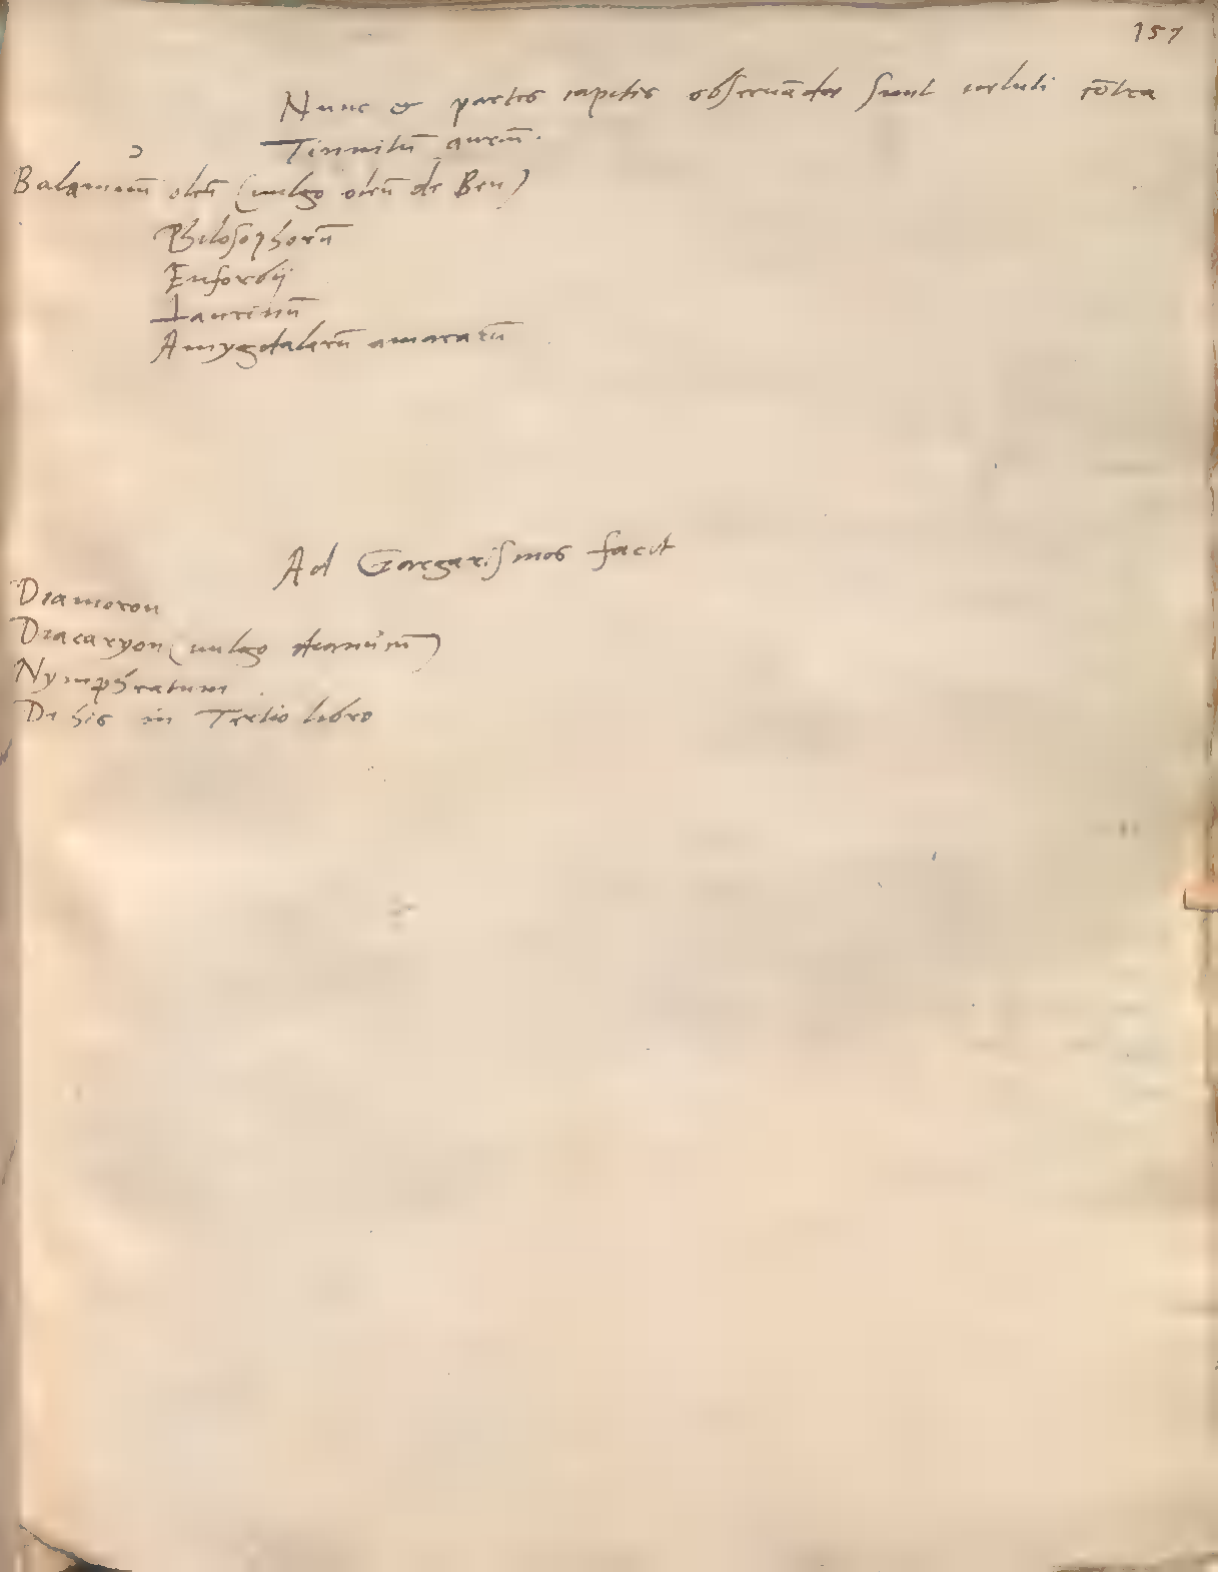 157
Nunc & partes capitis obseruādae sunt ueluti cōtra
Tinnitū auriū.
Balaninū oleū (uulgo oleū de Ben)
Philosophorū
Euforbij
Laurinū
Amygdalarū amararū
Ad Gargarismos faciūt
Diamoron
Diacaryon (uulgo
Nympheatum
De his in Tertio libro